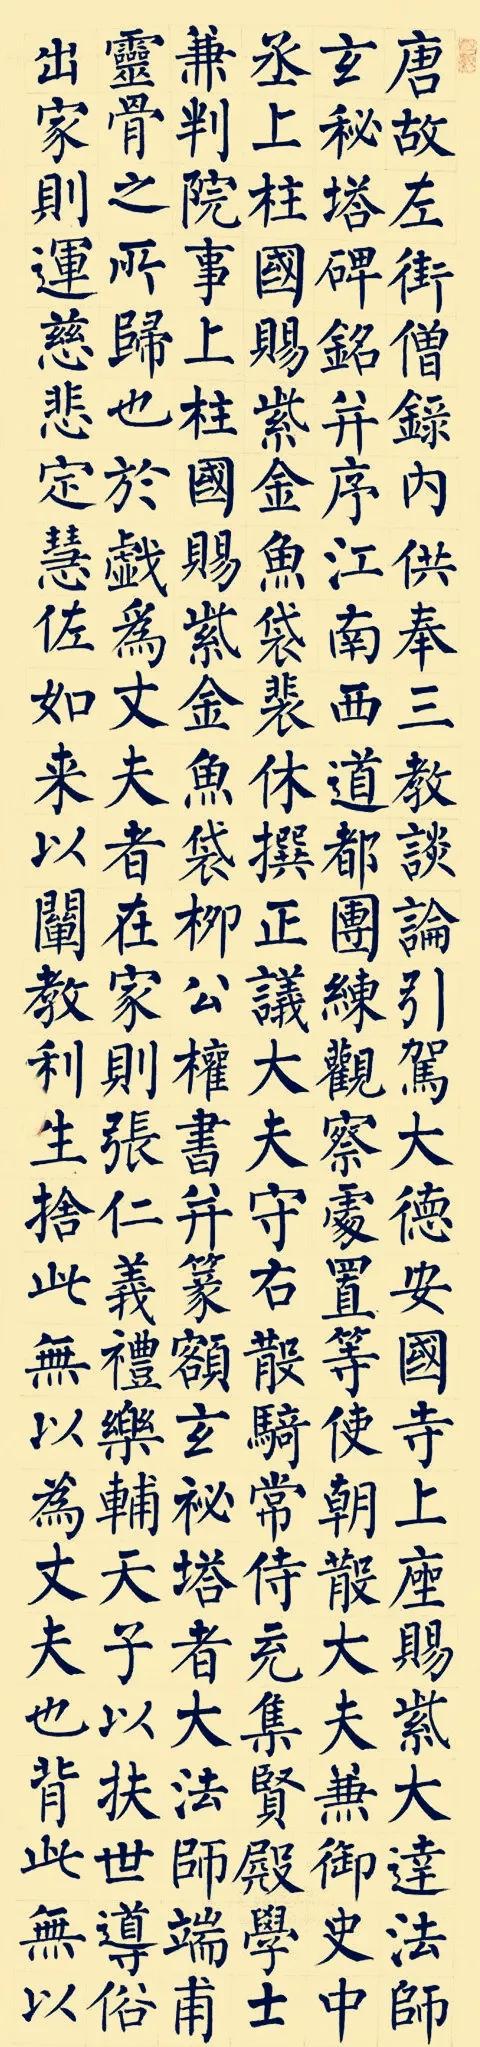 唐故左街僧錄內供奉三教談論引駕大德安國寺上座賜紫大達法師
玄秘塔碑銘并序江南西道都團練觀察處置等使朝散大夫兼御史中
丞上柱國賜紫金魚袋裴休撰正議大夫守右散騎常侍充集賢殿學士
兼判院事上柱國賜紫金魚袋柳公權書并篆額玄祕塔者大法師端甫
靈骨之所歸也於戲為丈夫者在家則張仁義禮樂輔天子以扶世導俗
出家則運慈悲定慧佐如来以闡教利生捨此無以為丈夫也背此無以